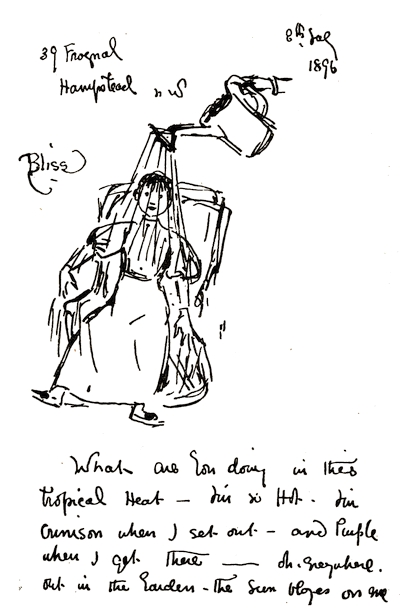 39 Frognal
Hampstead N W
8th July
1896
Bliss
What are you doing in this
tropical Heat — I'm so Hot. I'm
Crimison when I set out — and Purple
when I get There — oh. Everywhere.
out in the Garden - the Sun blazes on me